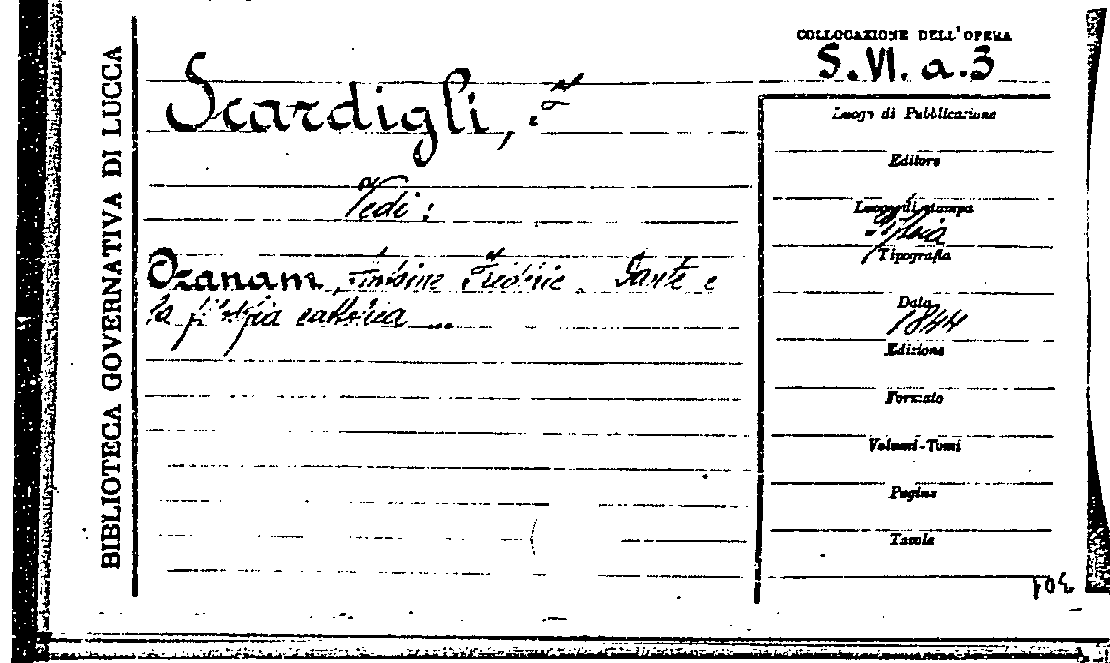 BIBLIOTECA GOVERNATIVA DI LUCCA
COLLOCAZIONE DELL'OPERA
S. VI. a. 3
Scardigli, F
Vedi:
Ozanam, Antoine Frédéric. Dante e
la filosofia cattolica ...
Luogo di Pubblicazione
Editore
Luogo di stampa
Tipografia
Data
1844
Edizione
Formato
Volumi-Tomi
Pagine
Tavole